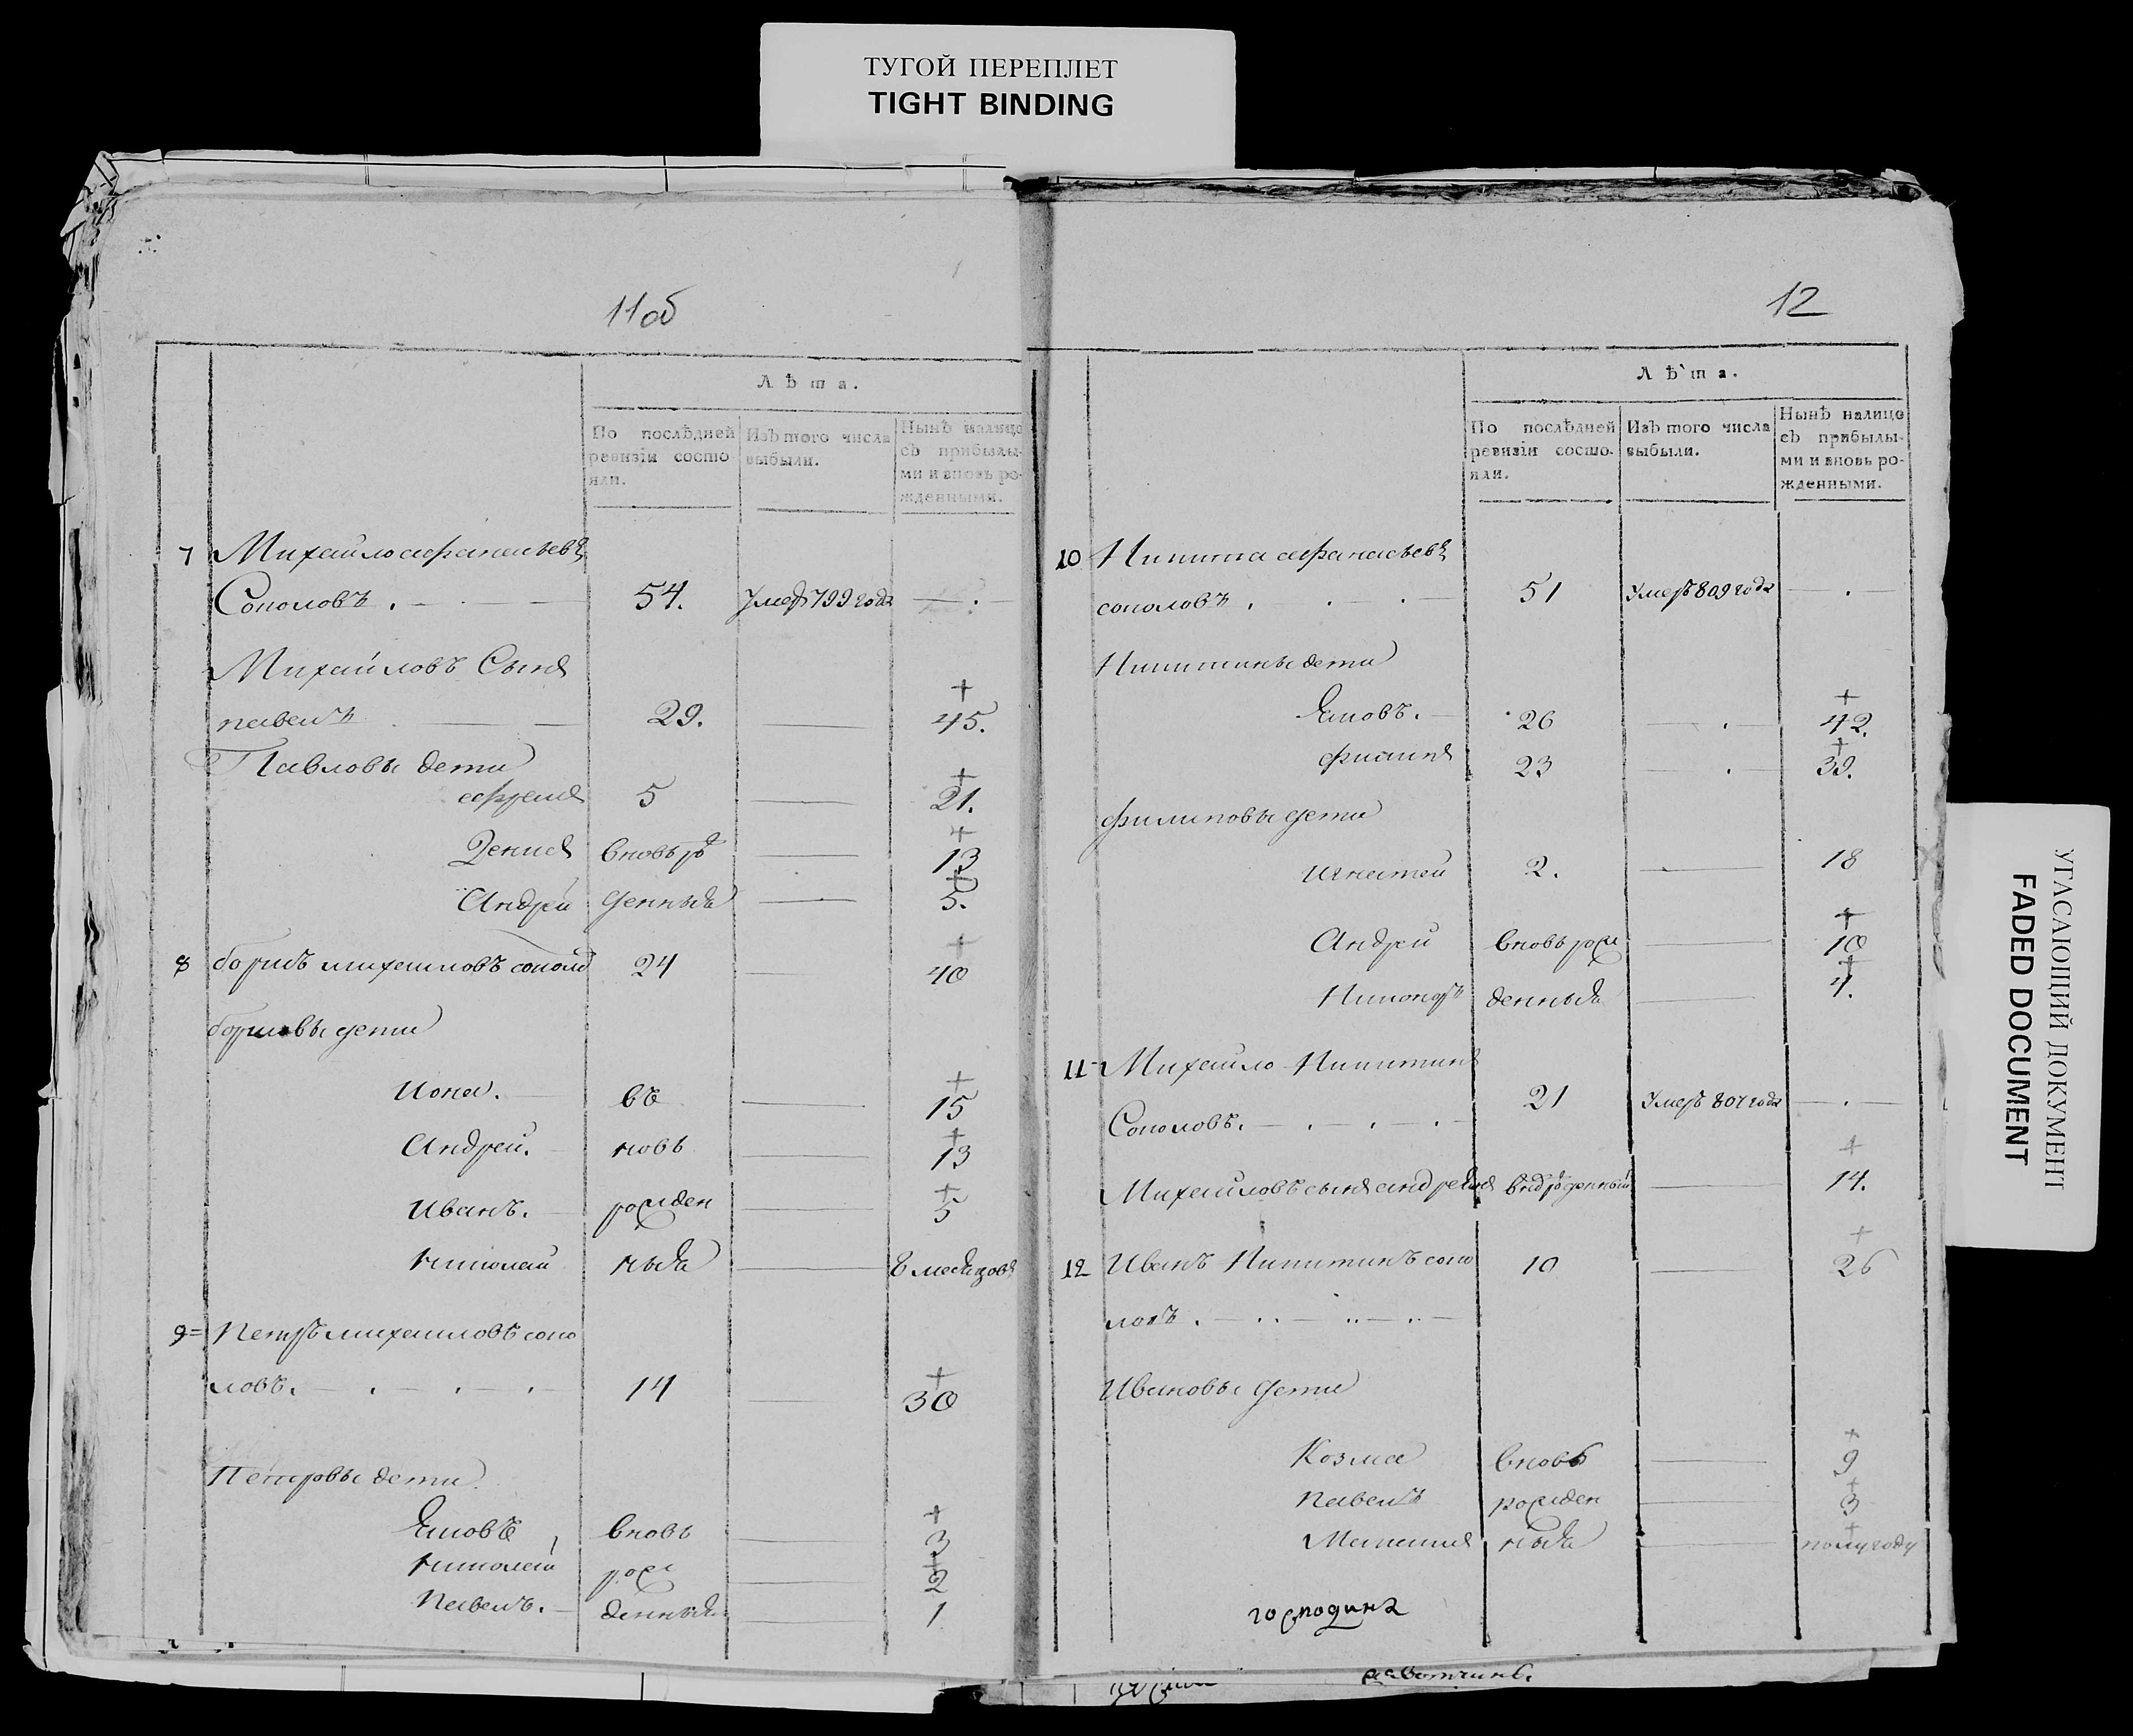 ТУГОЙ ПЕРЕПЛЕТ
TIGHT BINDING
11об
Лѣта.
По послѣдней ревизіи состо
яли.
Изъ того числа
выбыли.
Нынѣ налицо
съ прибылы-
ми и вновь ро-
жденными.
7 Михайло афанасьевъ
Соколовъ . 54. Умеръ 799 года — . —
Михайловъ Сынъ
павелъ 29. — 45.
Павловы дети
ефремъ 5 — 21.
Денисъ вновь ро — 13
Андрей жденныя — 5.
8 борисъ михайловъ соколо 24 — 40
борисовы дети
Иона. въ — 15
Андрей. новь — 13
Иванъ. рожден — 5
николай ныя — 8 месяцовъ
9 Петръ михайловъ соко
ловъ. 14 — 30
Петровы дети
Яковъ вновь — 3
николай рож — 2
Павелъ. денныя — 1
12
Лѣта.
По послѣдней
ревизіи состо-
яли.
Изъ того числа
выбыли.
Нынѣ налицо
съ прибылы-
ми и вновь ро-
жденными.
10 Никита афанасьевъ
соколовъ . 51 Умеръ 809 года — . —
Никитины дети
Яковъ. 26 — 42.
филипъ 23 — 39.
филиповы дети
игнатей 2. — 18
Андрей вновь рож — 10
Никоноръ денныя — 4.
11 Михайло Никитинъ
Соколовъ. 21 Умеръ 807 года — . —
Михайловъ сынъ андреянъ — 14.
12 Иванъ Никитинъ соко 10 — 26
ловъ .
Ивановы дети
Козма вновь — 9
павелъ рожден — 3
ныя — полугоду
господина
УГАСАЮЩИЙ ДОКУМЕНТ
FADED DOCUMENT